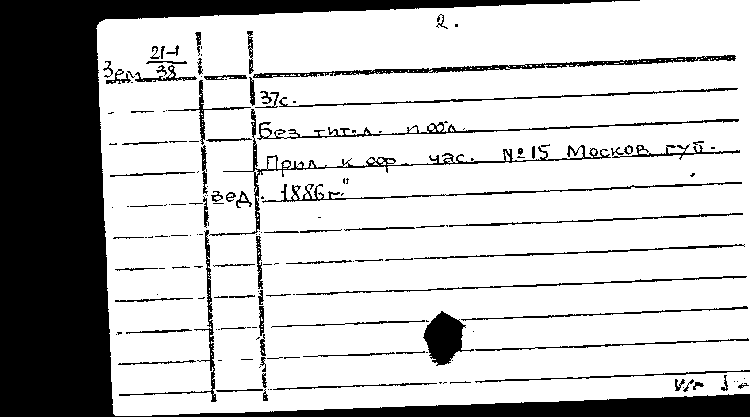 2.
Зем. 21-1
38
37с.
Без тит.л. и обл.
Прил. к оф. час. №15 Москов губ.
вед. 1886г."